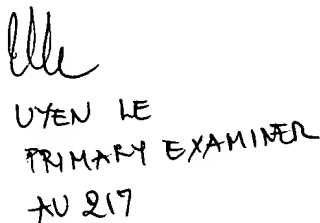 UYEN LE
PRIMARY EXAMINER
AU 217